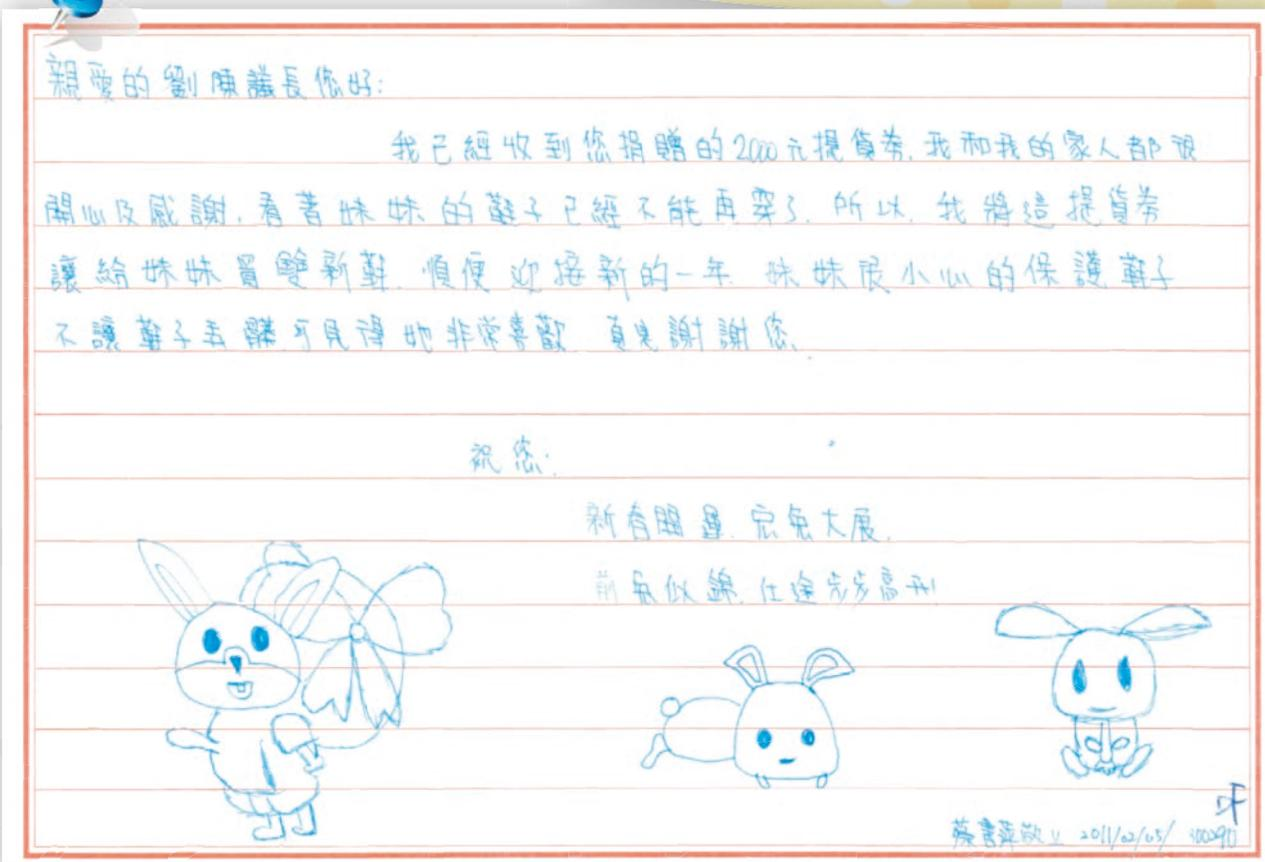 親愛的劉陳議長您好:
我已經收到您捐贈的2000元提貨券,我和我的家人都很
開心及感謝,看著妹妹的鞋子已經不能再穿了,所以,我將這提貨券
讓給妹妹買雙新鞋,順便迎接新的一年,妹妹很小心的保護鞋子
不讓鞋子弄髒可見得她非常喜歡 真是謝謝您.
祝您:
新春開運.宏兔大展.
前兔似錦.仕途步步高升
蔡書萍敬上 2011/02/05/